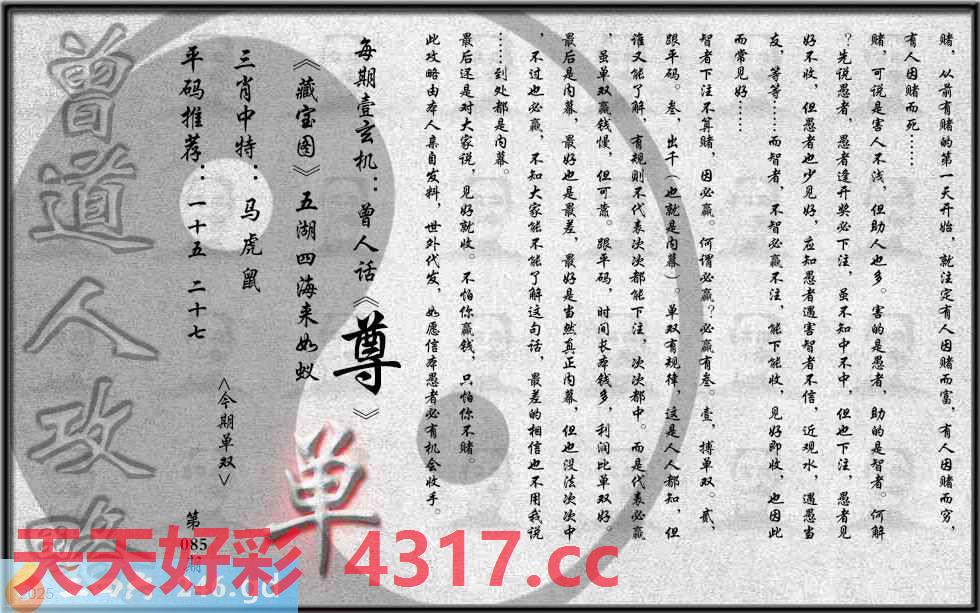 赌，从前有赌的第一天开始，就注定有人因赌而富，有人因赌而穷，
有人因赌而死……
赌，可说是害人不浅，但助人也多。害的是愚者，助的是智者。何解
？先说愚者，愚者逢开奖必下注，虽不知中不中，但也下注，愚者见
好不收，但愚者也少见好，应知愚者遇害智者不信，近观水，遇愚当
友，等等……而智者，不智必赢不注，能下能收，见好即收，也因此
而常见好……
智者下注不算赌，因必赢。何谓必赢？必赢有叁。壹，搏单双。贰，
跟平码。叁，出千（也就是内幕）。单双有规律，这是人人都知，但
谁又能了解，有规则不代表次次都能下注，次次都中。而是代表必赢
，虽单双赢钱慢，但可靠。跟平码，时间长本钱多，利润比单双好。
最后是内幕，最好也是最差，最好是当然真正内幕，但也没法次次中
，不过也必赢，不知大家能不能了解这句话，最差的相信也不用我说
……到处都是内幕。
最后还是对大家说，见好就收。不怕你赢钱，只怕你不赌。
此攻略由本人亲自发料，世外代发，如愿信本愚者必有机会收手。
每期壹玄机：曾人话《尊》
《藏宝图》五湖四海来如蚁
三肖中特：马虎鼠
平码推荐：一十五 二十七
<今期单双>
单
第
085
期
曾道人攻略
天天好彩 4317.cc
2025
246.gd